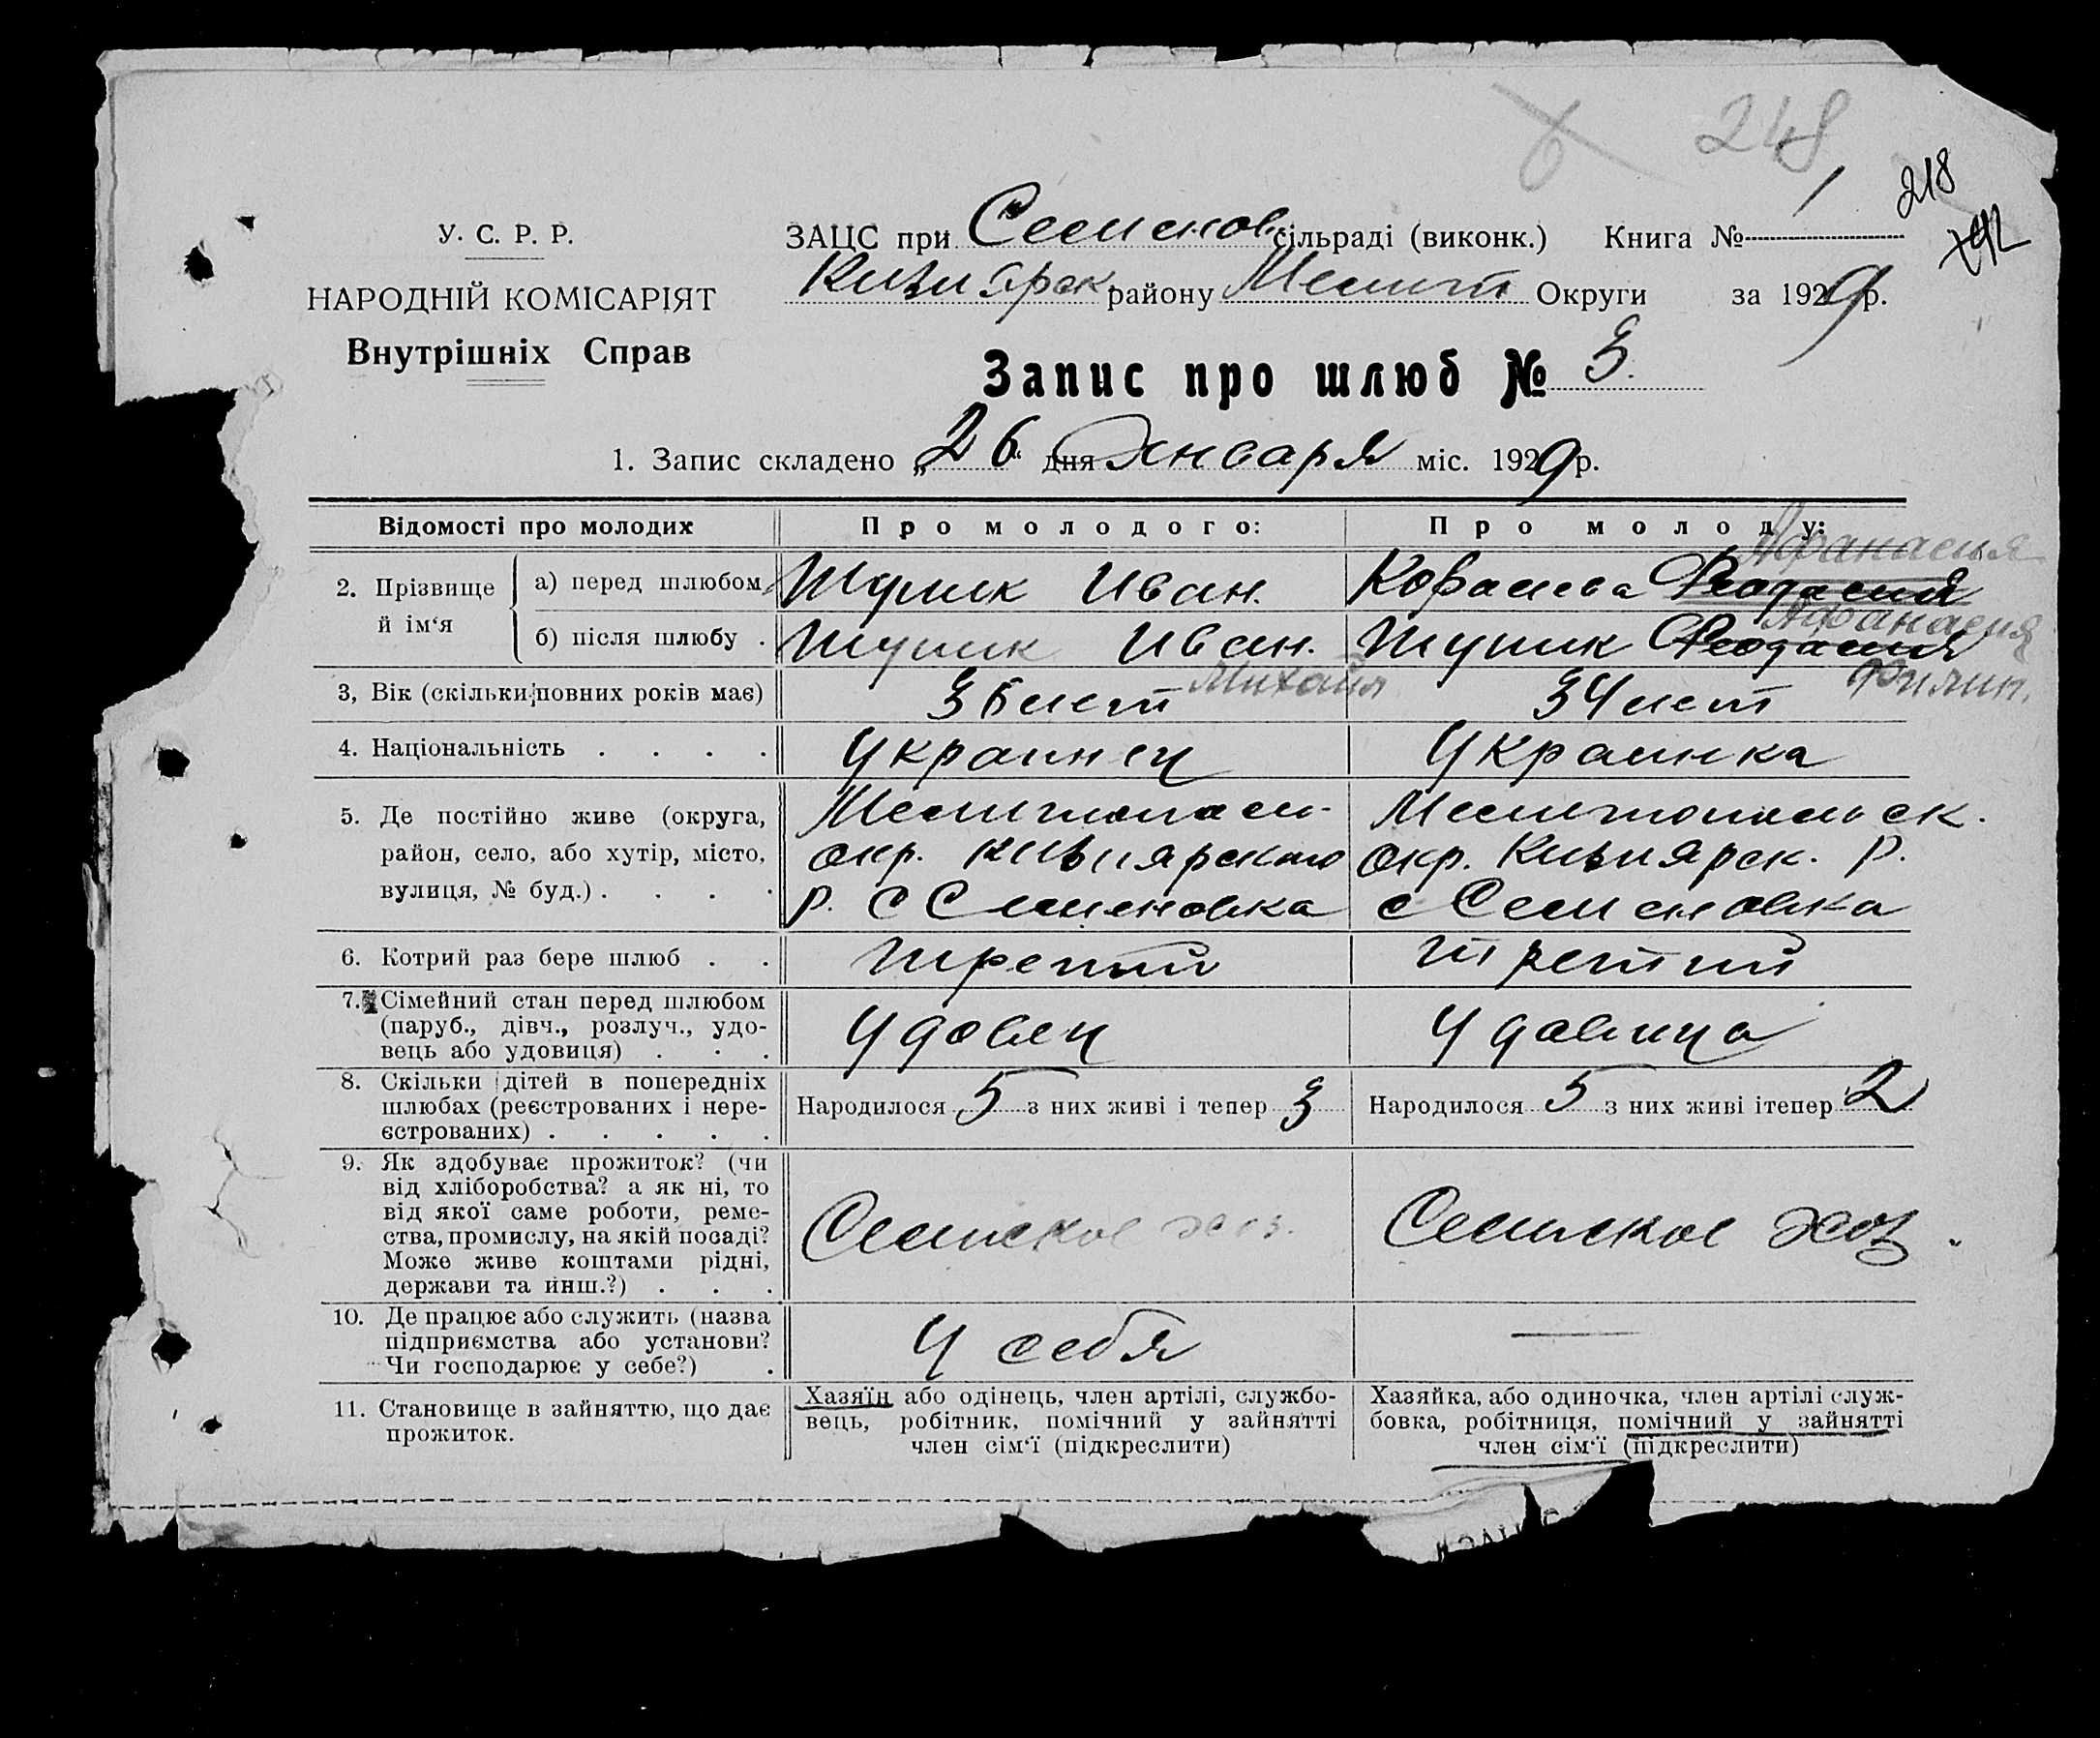 248
218
У. С. Р. Р.
НАРОДНІЙ КОМІСАРІЯТ
Внутрішніх Справ
ЗАЦС при Семенов сільраді (виконк.) Книга № 1
Кизиярск району Мелит Округи за 1929 р.
Запис про шлюб № 3.
1. Запис складено „26“ дня Января міс. 1929 р.
Відомості про молодих Про молодого: Про молоду:
Афанасия
2. Прізвище й ім‘я
а) перед шлюбом Шулик Иван. Феодасия
Афанасия
б) після шлюбу . Шулик Иван. Шулик Феодасия
Михайл Филип.
3, Вік (скільки повних років має) 36 лет 34 лет
4. Національність . . . . Украинец Украинка
5. Де постійно живе (округа, район, село, або хутір, місто, вулиця, № буд.) . . . .
Мелитопольск.
окр. Кизиярского окр. Кизиярск. р.
р. с Семеновка с Семеновка
6. Котрий раз бере шлюб . . третий третий
7. Сімейний стан перед шлюбом
(паруб., дівч., розлуч., удо-
вець або удовиця) . . . Удовец Удовица
8. Скільки дітей в попередніх
шлюбах (реєстрованих і нере-
єстрованих) . . . . .
Народилося 5 з них живі і тепер 3 Народилося 5 з них живі ітепер 2
9. Як здобуває прожиток? (чи
від хліборобства? а як ні, то
від якої саме роботи, реме-
ства, промислу, на якій посаді?
Може живе коштами рідні,
держави та инш.?) . . .
Сельское хоз. Сельское хоз.
10. Де працює або служить (назва
підприємства або установи?
Чи господарює у себе?) .
У себя —
11. Становище в зайняттю, що дає
прожиток.
Хазяїн або одінець, член артілі, службо-
вець, робітник, помічний у зайнятті
член сім‘ї (підкреслити)
Хазяйка, або одиночка, член артілі служ-
бовка, робітниця, помічний у зайнятті
член сім‘ї (підкреслити)